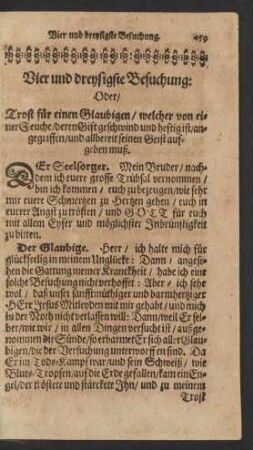 Vier und dreysigste Besuchung. 459
Vier und dreysigste Besuchung:
Oder/
Trost für einen Glaubigen/ welcher von ei-
ner Seuche/ deren Gift geschwind und heftig ist/ an-
gegriffen/ und allbereit seinen Geist auf-
geben muß.
DEr Seelsorger. Mein Bruder/ nach-
dem ich euere grosse Trübsal vernommen/
bin ich kommen/ euch zu bezeugen/ wie sehr
mir euere Schmertzen zu Hertzen gehen/ euch in
eurer Angst zu trösten/ und GOTT für euch
mit allem Eyfer und möglichster Inbrünstigkeit
zu bitten.
Der Glaubige. Herr/ ich halte mich für
glückselig in meinem Unglücke: Dann/ angese-
hen die Gattung meiner Kranckheit/ habe ich eine
solche Besuchung nicht verhoffet: Aber/ ich sehe
wol/ daß unser sanfftmüthiger und barmhertziger
HErr Jesus Mitleyden mit mir gehabt/ und mich
in der Noth nicht verlassen will: Dann/ weil Er sel-
ber/ wie wir/ in allen Dingen versucht ist/ ausge-
nommen die Sünde/ so erbarmet Er sich aller Glau-
bigen/ die der Versuchung unterworffen sind. Da
Er im Tods-Kampf war/ und sein Schweiß/ wie
Bluts-Tropfen/ auf die Erde gefallen/ kam ein En-
gel/ der tröstete und stärckete Ihn/ und zu meinem
Trost